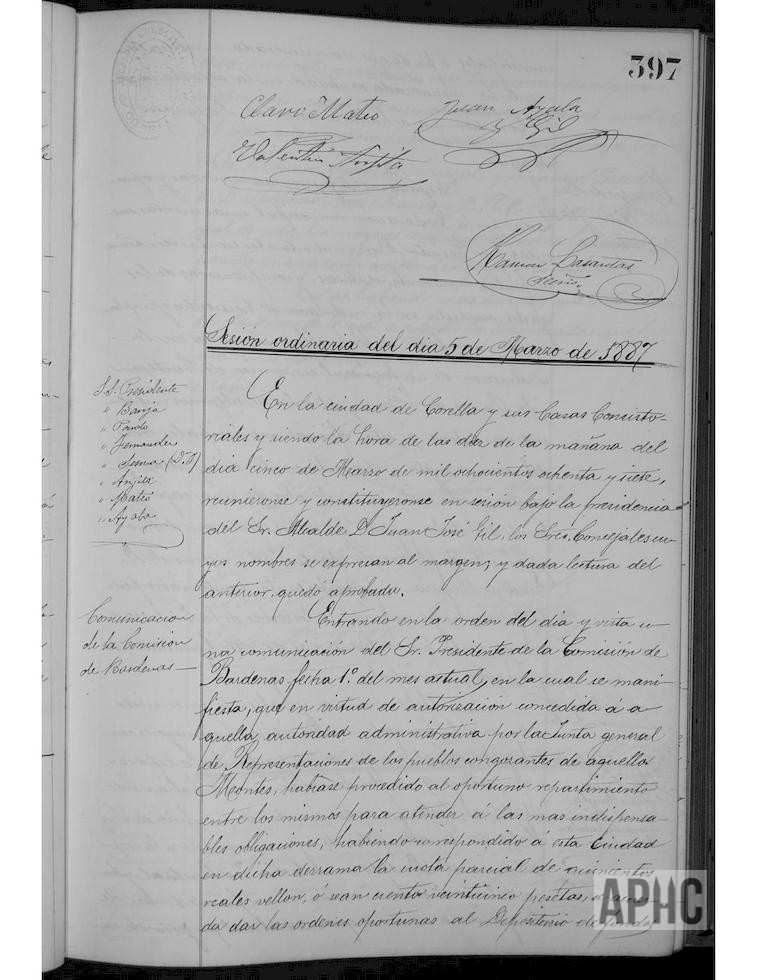 397
Claro Mateo
Juan Ayala
y Gil
Valentin
Ramon
Srio.
Sesión ordinaria del dia 5 de Marzo de 1887
S.S. Presidente
" Fernandez
" Sesma (D. F)
" Mateo
" Ayala
En la ciudad de Corella y sus Casas Consisto-
riales y siendo la hora de las diez de la mañana del
dia cinco de Marzo de mil ochocientos ochenta y siete,
reunieronse y constituyeronse en sesión bajo la presidencia
del Sr. Alcalde D. Juan José Gil, los Sres. Concejales cu-
yos nombres se expresan al margen, y dada lectura del
anterior, quedó aprobada.
Comunicacion
de la Comision
de Bardenas
Entrando en la orden del dia y vista u-
na comunicación del Sr. Presidente de la Comisión de
Bardenas fecha 1º del mes actual, en la cual se mani-
fiesta, que en virtud de autorización concedida á a
quella autoridad administrativa por la Junta general
de Representaciones de los pueblos congozantes de aquellos
Montes, habiase procedido al oportuno repartimiento
entre los mismos para atender á las mas indispensa-
bles obligaciones, habiendo correspondido á esta Ciudad
en dicha derrama la cuota parcial de quinientos
reales vellon, ó sean ciento veinticinco pesetas, se acuer-
da dar las ordenes oportunas al Depositario de fondos
APHC